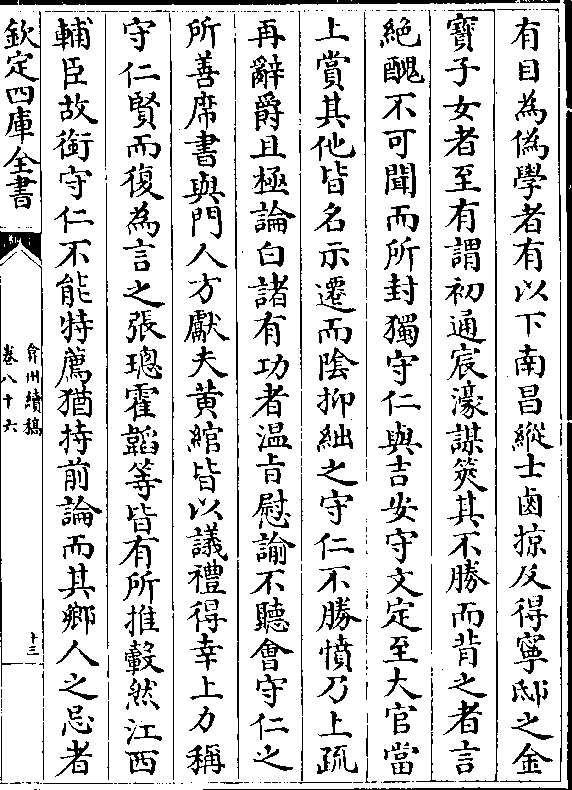 有目為偽學者有以下南昌縱士鹵掠及得寧邸之金
寶子女者至有謂初通宸濠謀筴其不勝而背之者言
絶醜不可聞而所封獨守仁與吉安守文定至大官當
上賞其他皆名示遷而陰抑絀之守仁不勝憤乃上疏
再辭爵且極論白諸有功者温㫖慰諭不聽㑹守仁之
所善席書與門人方獻夫黄綰皆以議禮得幸上力稱
守仁賢而復為言之張璁霍韜等皆有所推轂然江西
輔臣故銜守仁不能特薦猶持前論而其鄉人之忌者
欽定四庫全書
弇州續稿
卷八十六
十三